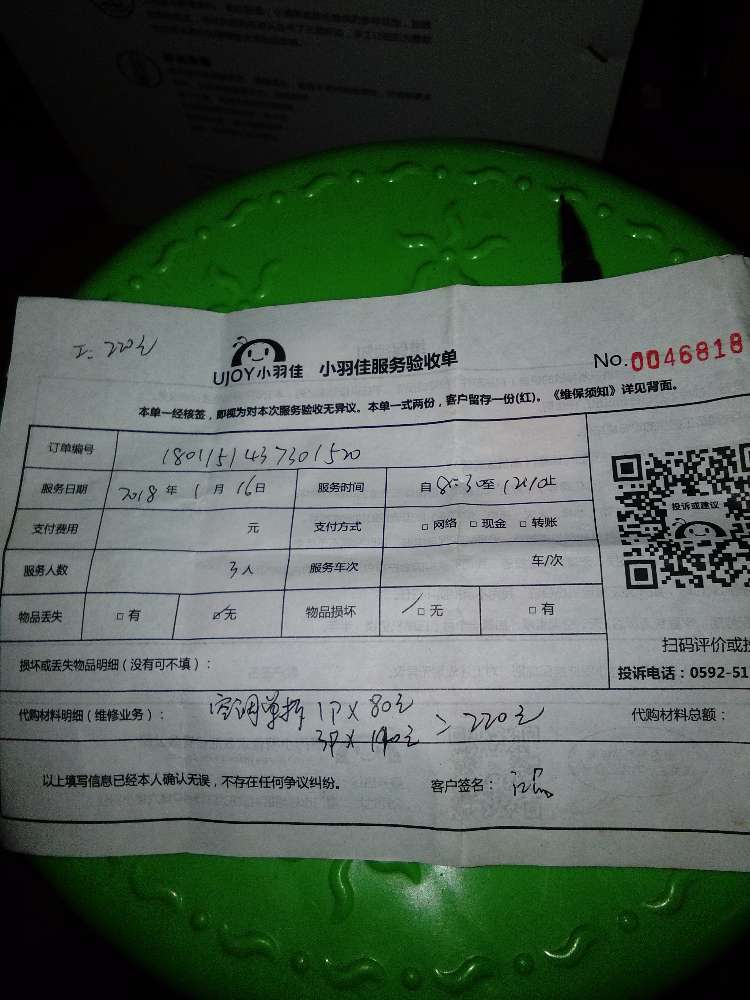 工: 220元
UJOY小羽佳 小羽佳服务验收单 No.0046818
本单一经核签，即视为对本次服务验收无异议。本单一式两份，客户留存一份(红)。《维保须知》详见背面。
订单编号 1801151437301520
服务日期 2018年1月16日 服务时间 自8:30至12:10止
支付费用 元 支付方式 □网络 □现金 □转账
投诉或建议
服务人数 3人 服务车次 车/次
物品丢失 □有 ☑无 物品损坏 □无 □有
扫码评价或投
损坏或丢失物品明细（没有可不填）：
投诉电话：0592-51
代购材料明细（维修业务）： 空调单拆 1P×80元 = 220元 代购材料总额：
3P×140元
以上填写信息已经本人确认无误，不存在任何争议纠纷。 客户签名：